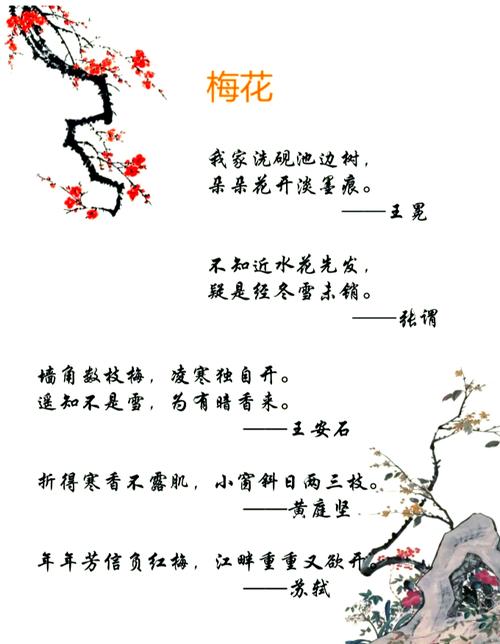 梅花
我家洗砚池边树，
朵朵花开淡墨痕。
——王冕
不知近水花先发，
疑是经冬雪未销。
——张谓
墙角数枝梅，凌寒独自开。
遥知不是雪，为有暗香来。
——王安石
折得寒香不露肌，小窗斜日两三枝。
——黄庭坚
年年芳信负红梅，江畔重重又欲开。
——苏轼